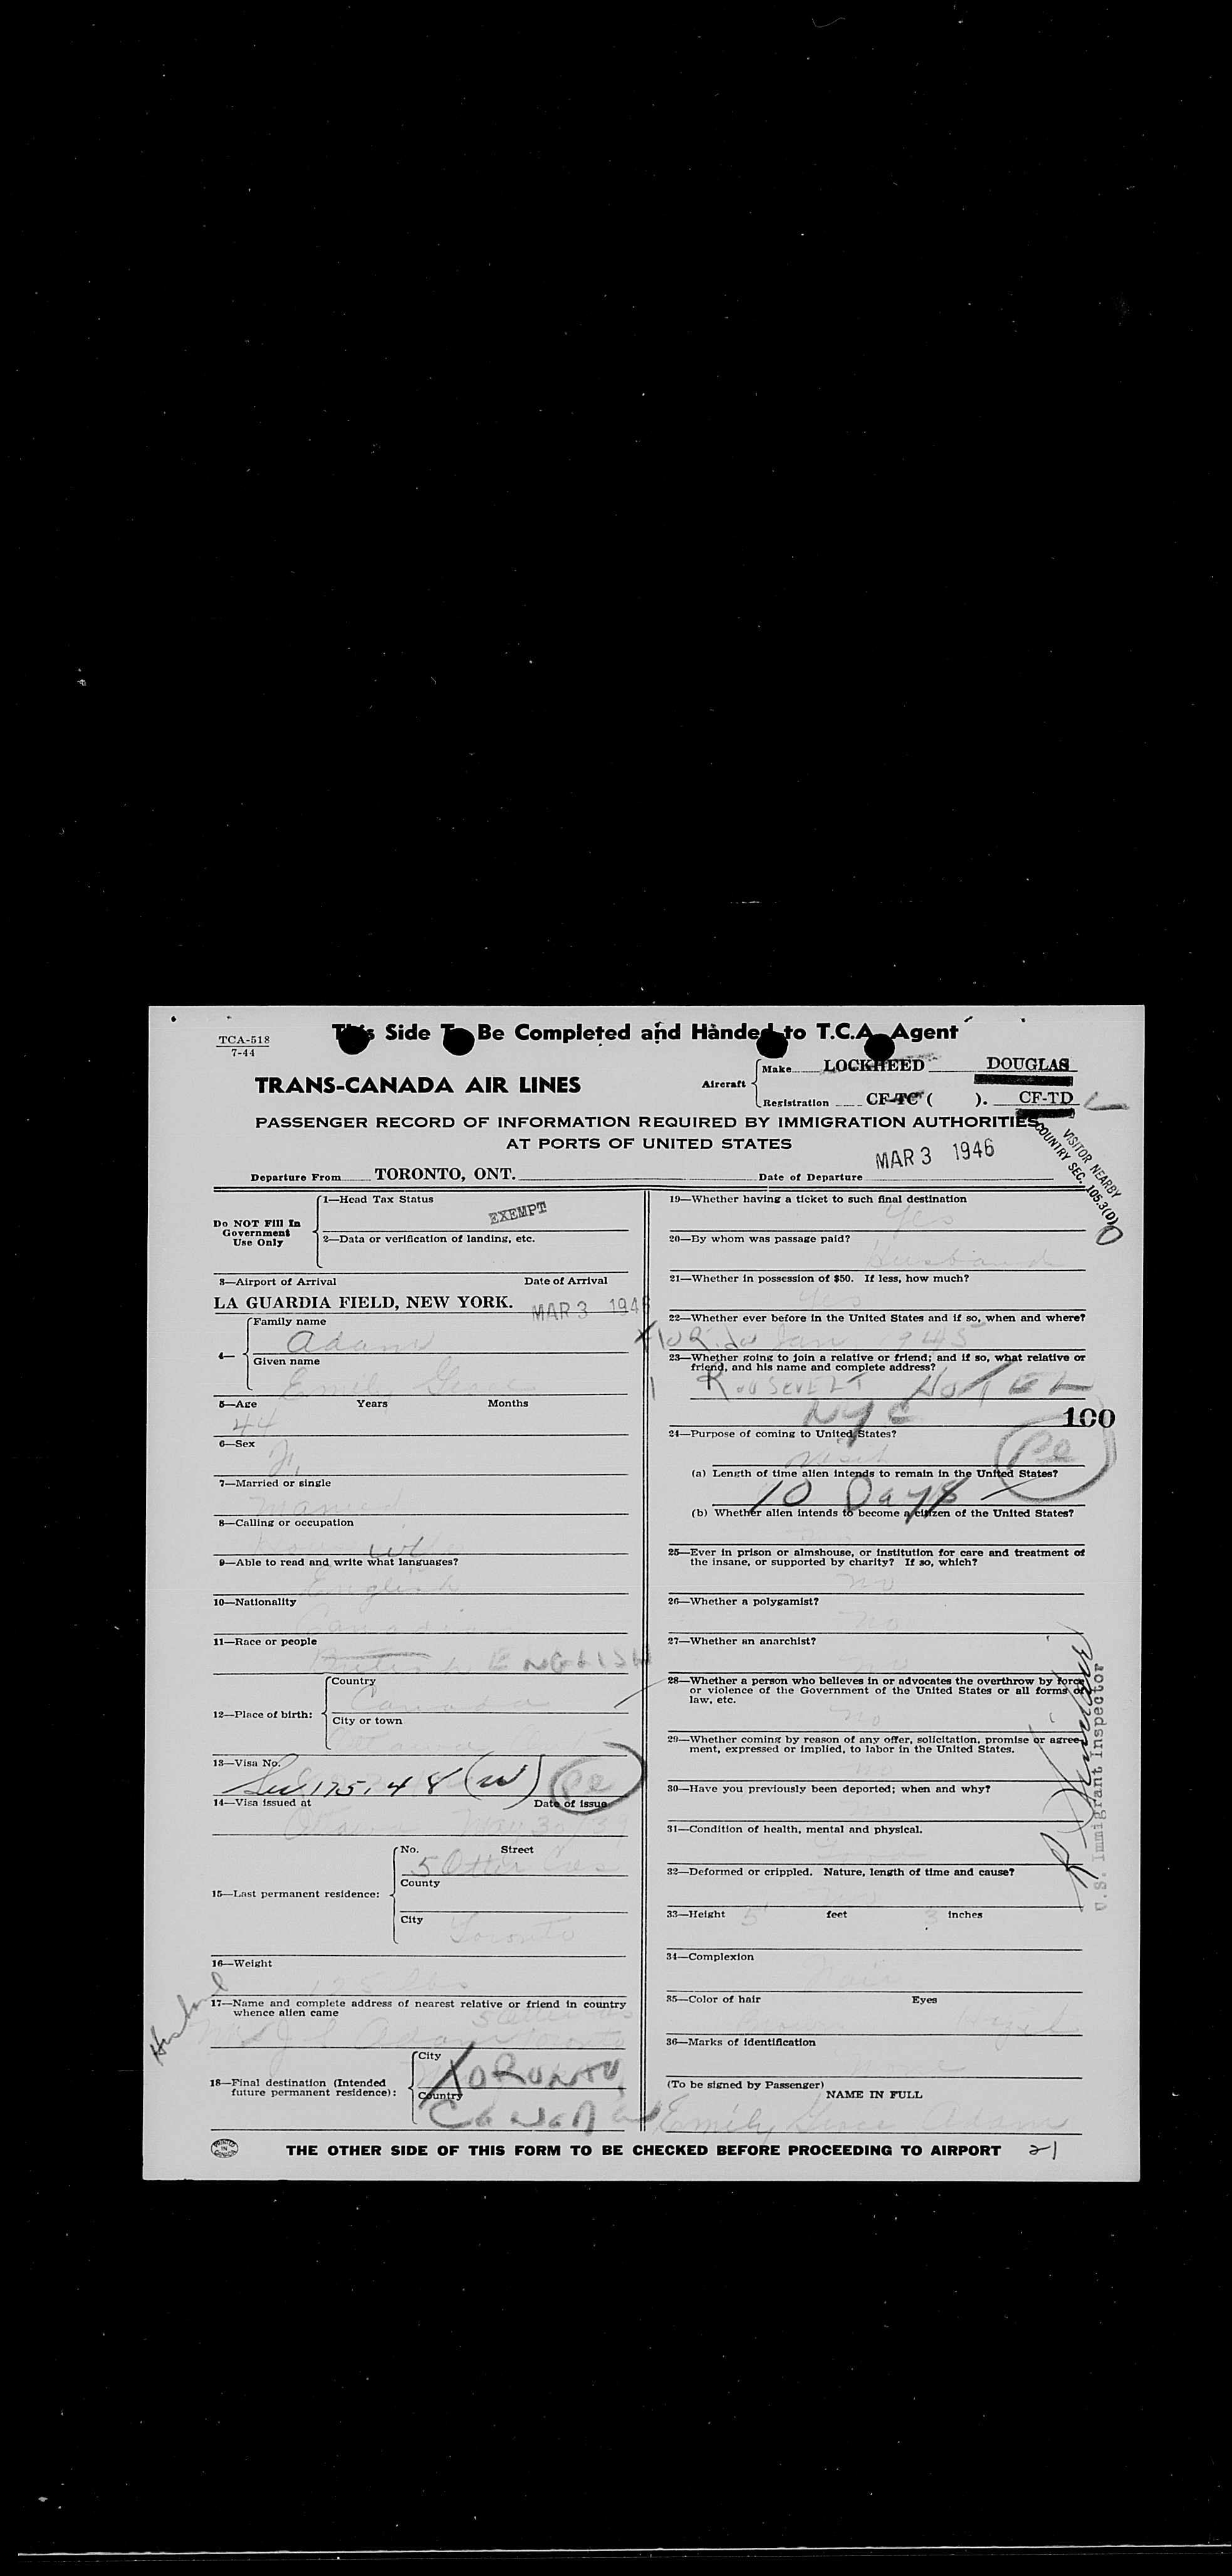 TCA-518
7-44
This Side To Be Completed and Handed to T.C.A. Agent
TRANS-CANADA AIR LINES
Aircraft
Make LOCKHEED DOUGLAS
Registration CF-TC ( ). CF-TD
PASSENGER RECORD OF INFORMATION REQUIRED BY IMMIGRATION AUTHORITIES
AT PORTS OF UNITED STATES
VISITOR NEARBY
COUNTRY SEC. 105.3(D)
Departure From TORONTO, ONT. Date of Departure MAR 3 1946
Do NOT Fill In
Government
Use Only
1—Head Tax Status
EXEMPT
2—Data or verification of landing, etc.
3—Airport of Arrival Date of Arrival
LA GUARDIA FIELD, NEW YORK. MAR 3 194
4—
Family name
Adam
Given name
Emily Grace
5—Age Years Months
44
6—Sex
F.
7—Married or single
Married
8—Calling or occupation
Housewife
9—Able to read and write what languages?
English
10—Nationality
Canadian
11—Race or people
British ENGLISH
12—Place of birth:
Country
Canada
City or town
Ottawa
13—Visa No.
Sec 175.48 (w) Pe
14—Visa issued at Date of issue
Ottawa
15—Last permanent residence:
No. Street
5 Otter Cres
County
City
Toronto
16—Weight
125 lbs
17—Name and complete address of nearest relative or friend in country
whence alien came
Husband
Adam
18—Final destination (Intended
future permanent residence):
City
TORONTO
Country
CANADA
19—Whether having a ticket to such final destination
Yes
20—By whom was passage paid?
Husband
21—Whether in possession of $50. If less, how much?
Yes
22—Whether ever before in the United States and if so, when and where?
Florida Jan 1945
23—Whether going to join a relative or friend; and if so, what relative or
friend, and his name and complete address?
ROOSEVELT HOTEL
NYC
100
24—Purpose of coming to United States?
Visit
Pe
(a) Length of time alien intends to remain in the United States?
10 Days
(b) Whether alien intends to become a citizen of the United States?
25—Ever in prison or almshouse, or institution for care and treatment of
the insane, or supported by charity? If so, which?
no
26—Whether a polygamist?
no
27—Whether an anarchist?
no
28—Whether a person who believes in or advocates the overthrow by force
or violence of the Government of the United States or all forms of
law, etc.
no
29—Whether coming by reason of any offer, solicitation, promise or agree-
ment, expressed or implied, to labor in the United States.
no
30—Have you previously been deported; when and why?
no
31—Condition of health, mental and physical.
Good
32—Deformed or crippled. Nature, length of time and cause?
no
33—Height 5' feet 3 inches
34—Complexion
Fair
35—Color of hair Eyes
Brown Hazel
36—Marks of identification
(To be signed by Passenger)
NAME IN FULL
Emily Grace Adam
U.S. Immigrant Inspector
PRINTED IN CANADA
THE OTHER SIDE OF THIS FORM TO BE CHECKED BEFORE PROCEEDING TO AIRPORT 21